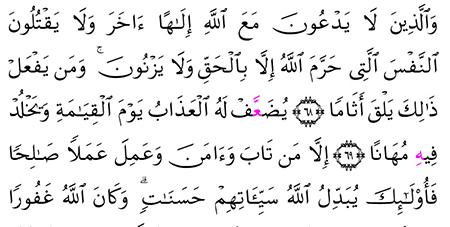 وَالَّذِينَ لَا يَدْعُونَ مَعَ اللَّهِ إِلَٰهًا ءَاخَرَ وَلَا يَقْتُلُونَ
النَّفْسَ الَّتِى حَرَّمَ اللَّهُ إِلَّا بِالْحَقِّ وَلَا يَزْنُونَ ۚ وَمَن يَفْعَلْ
ذَٰلِكَ يَلْقَ أَثَامًا ﴿٦٨﴾ يُضَعَّفْ لَهُ الْعَذَابُ يَوْمَ الْقِيَٰمَةِ وَيَخْلُدْ
فِيهِ مُهَانًا ﴿٦٩﴾ إِلَّا مَن تَابَ وَءَامَنَ وَعَمِلَ عَمَلًا صَٰلِحًا
فَأُو۟لَٰٓئِكَ يُبَدِّلُ اللَّهُ سَيِّـَٔاتِهِمْ حَسَنَٰتٍ ۗ وَكَانَ اللَّهُ غَفُورًا